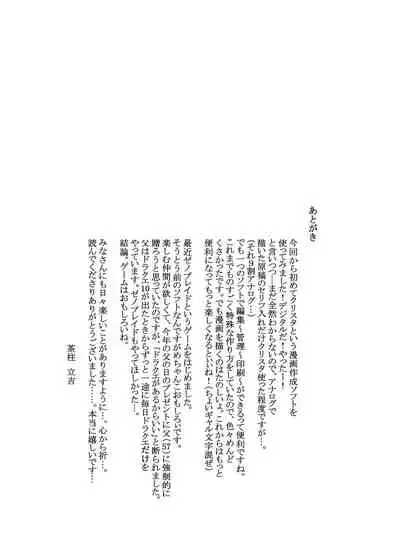 あとがき
今回から初めてクリスタという漫画作成ソフトを
使ってみました！デジタルだ！やったー！
と言いつつ…まだ全然わからないので、アナログで
描いた原稿のセリフ入れだけクリスタ使った程度ですが…。
(それ9割アナログ…)
でも一つのソフトで編集～管理～印刷～ができるって便利ですね。
これまでものすごく特殊な作り方をしていたので、色々めんど
くさかったです。でも漫画を描くのはたのしいょ。これからはもっと
便利になってもっと楽しくなるといいね！(ちょいギャル文字混ぜ)
最近ゼノブレイドというゲームをはじめました。
そうとう前のソフトなんですがめちゃんこおもしろいです。
楽しむ仲間が欲しくて、今年の父の日のプレゼントに父(57)に強制的に
贈ろうと思っていたのですが、「ドラクエがあるからいい」と断られました。
父はドラクエ10が出たときからずっと一途に毎日ドラクエだけを
やっています。ゼノブレイドもやってほしかったー。
結論。ゲームはおもしろいね。
みなさんにも日々楽しいことがありますように…。心から祈…。
読んでくださりありがとうございました……。本当に嬉しいです…
茶柱　立吉